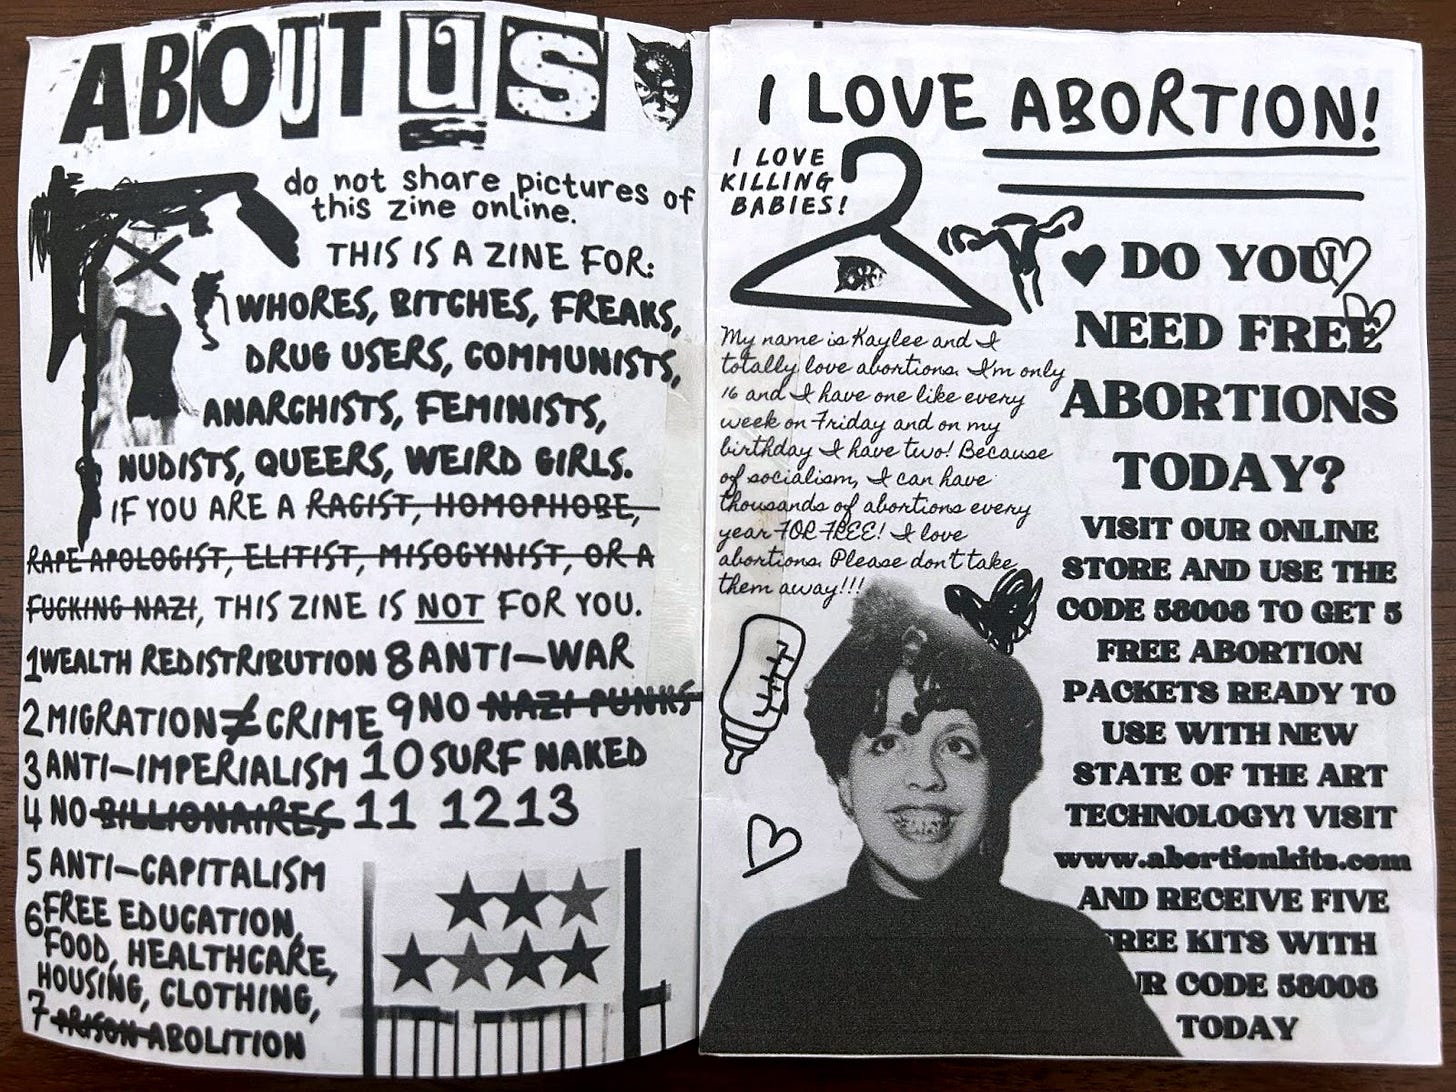 ABOUT US
do not share pictures of
this zine online.
THIS IS A ZINE FOR:
WHORES, BITCHES, FREAKS,
DRUG USERS, COMMUNISTS,
ANARCHISTS, FEMINISTS,
NUDISTS, QUEERS, WEIRD GIRLS.
IF YOU ARE A RACIST, HOMOPHOBE,
RAPE APOLOGIST, ELITIST, MISOGYNIST, OR A
FUCKING NAZI, THIS ZINE IS NOT FOR YOU.
1 WEALTH REDISTRIBUTION
2 MIGRATION ≠ CRIME
3 ANTI-IMPERIALISM
4 NO BILLIONAIRES
5 ANTI-CAPITALISM
6 FREE EDUCATION,
FOOD, HEALTHCARE,
HOUSING, CLOTHING,
7 PRISON ABOLITION
8 ANTI-WAR
9 NO NAZI PUNKS
10 SURF NAKED
11 1213
I LOVE ABORTION!
I LOVE
KILLING
BABIES!
My name is Kaylee and I
totally love abortions. I'm only
16 and I have one like every
week on Friday and on my
birthday I have two! Because
of socialism, I can have
thousands of abortions every
year FOR FREE! I love
abortions. Please don't take
them away!!!
DO YOU
NEED FREE
ABORTIONS
TODAY?
VISIT OUR ONLINE
STORE AND USE THE
CODE 58008 TO GET 5
FREE ABORTION
PACKETS READY TO
USE WITH NEW
STATE OF THE ART
TECHNOLOGY! VISIT
www.abortionkits.com
AND RECEIVE FIVE
FREE KITS WITH
UR CODE 58008
TODAY